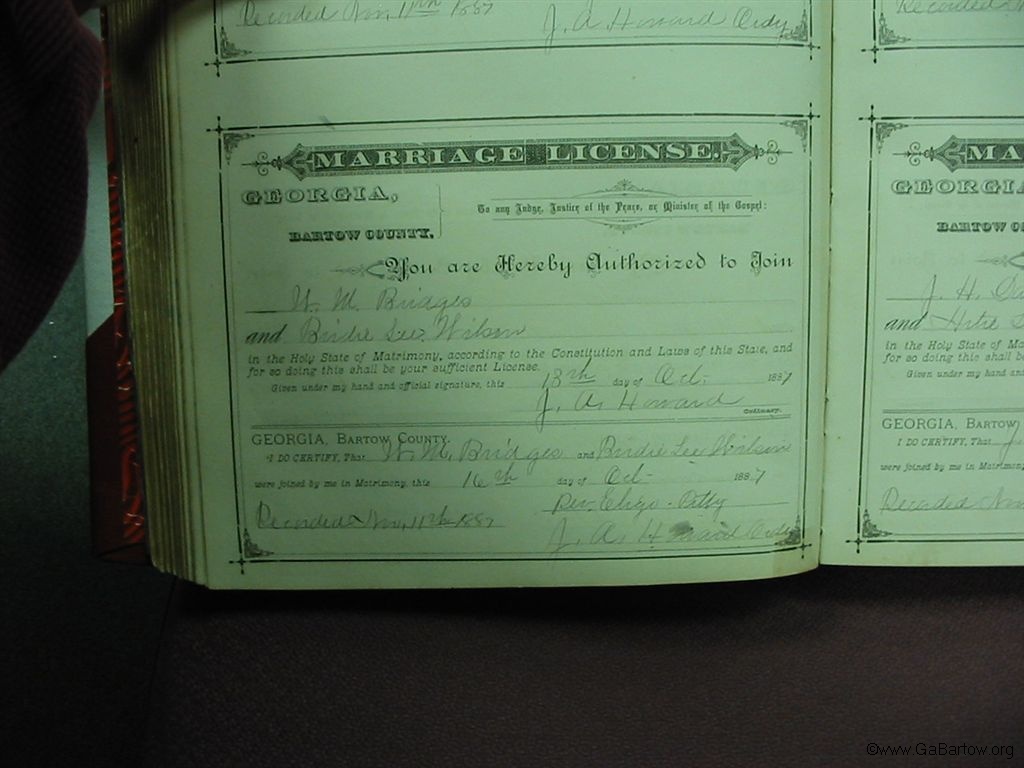 Recorded Nov, 11th 1887
J. A. Howard Ordy
Recorded
MARRIAGE LICENSE.
GEORGIA,
BARTOW COUNTY.
To any Judge, Justice of the Peace, or Minister of the Gospel:
You are Hereby Authorized to Join
W. M. Bridges
and Birdie Lee Wilson
in the Holy State of Matrimony, according to the Constitution and Laws of this State, and
for so doing this shall be your sufficient License.
Given under my hand and official signature, this 13th day of Oct. 1887
J. A. Howard Ordinary.
GEORGIA, BARTOW COUNTY.
I DO CERTIFY, That W. M. Bridges and Birdie Lee Wilson
were joined by me in Matrimony, this 16th day of Oct- 1887
Rev
Recorded Nov, 11th 1887
J. A. Howard Ordy
MA
GEORGIA
BARTOW CO
J. H.
and
in the Holy State of Ma
for so doing this shall be
Given under my hand and
GEORGIA, BARTOW
I DO CERTIFY, That J
were joined by me in Matrimony,
Recorded Nov
©www.GaBartow.org